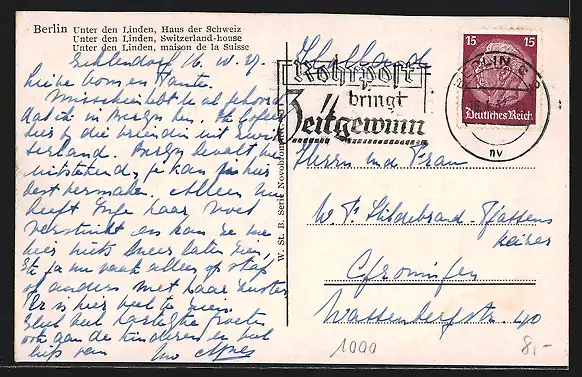 Berlin Unter den Linden, Haus der Schweiz
Unter den Linden, Switzerland-house
Unter den Linden, maison de la Suisse
Zehlendorf 16. IV. 37.
Lieve oom en Tante.
Misschien hebt U al gehoord
dat ik in Berlijn ben. Ik logeer
hier bij die vriendin uit Zwit-
serland. Berlijn bevalt me
uitstekend, je kan je hier
best vermaken. Alleen
heeft Inge haar voet
verstuikt en kan ze me
hier niets meer laten zien.
Ik ga nu vaak alleen op stap
of anders met haar zuster.
Er is hier veel te zien.
Heel veel hartelijke groeten
ook aan de kinderen en veel
liefs van Uw Agnes
W. St. B. Serie Novobrom
Holland
Rohrpost
bringt
Zeitgewinn
BERLIN
15 15
Deutsches Reich
Herrn und Frau
W. P. Hildebrand-Tjassens
Keiser
Groningen
Wassenbergstr. 40
1000
8,-